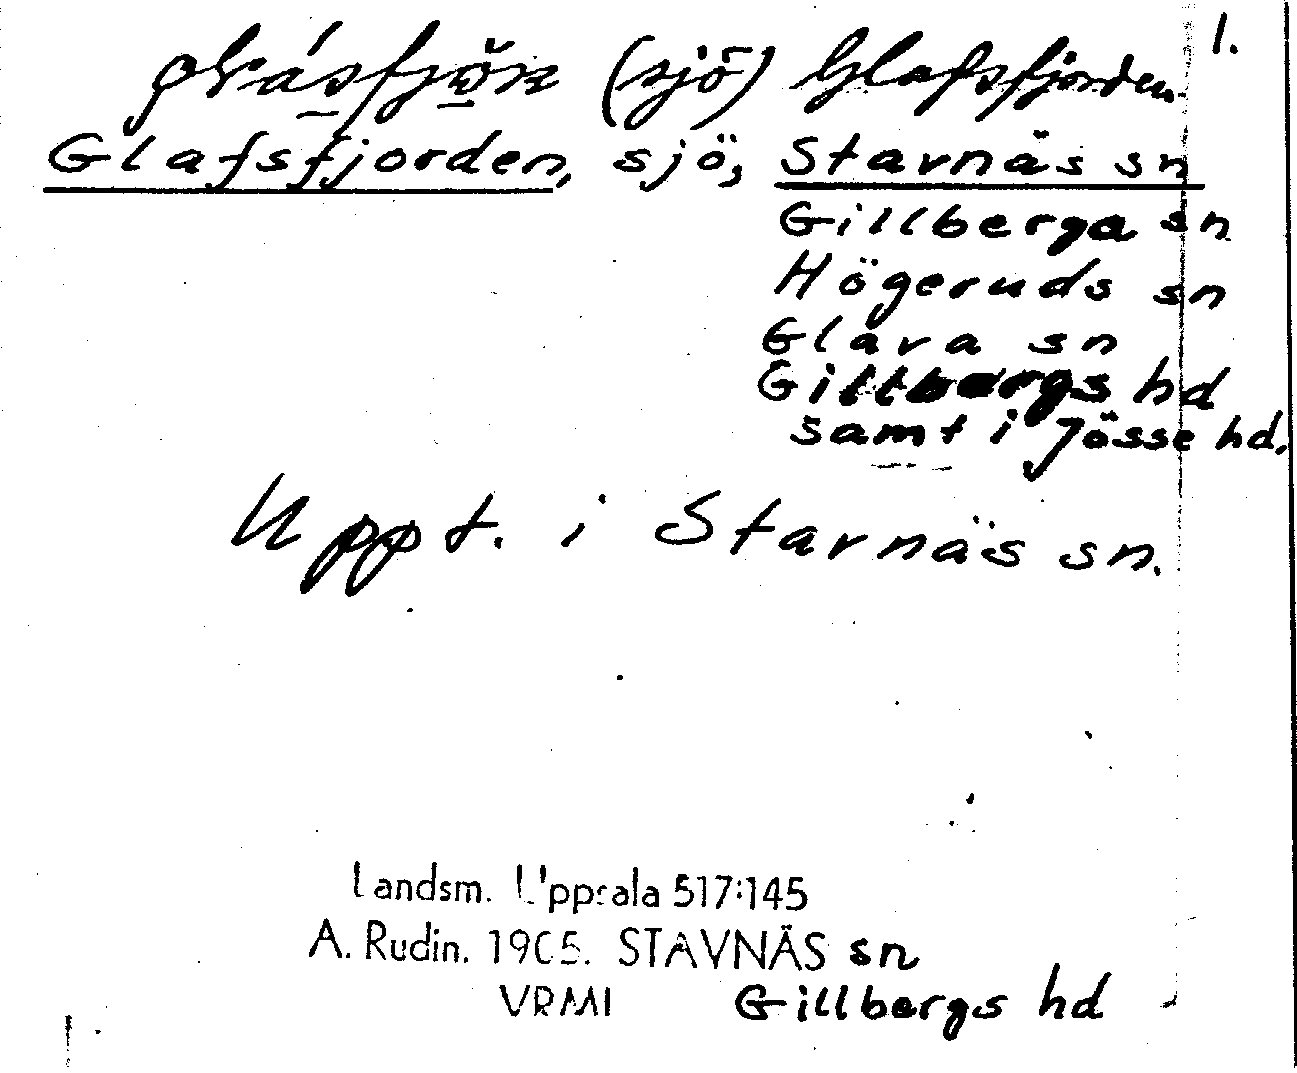 1.
(sjö) Glafsfjorden.
Glafsfjorden, sjö, Stavnäs sn
Gillberga sn
Högeruds sn
Glava sn
Gillbergs hd
samt i Jösse hd.
Uppt. i Stavnäs sn.
Landsm. Uppsala 517:145
A. Rudin. 1905. STAVNÄS sn
VRMl Gillbergs hd